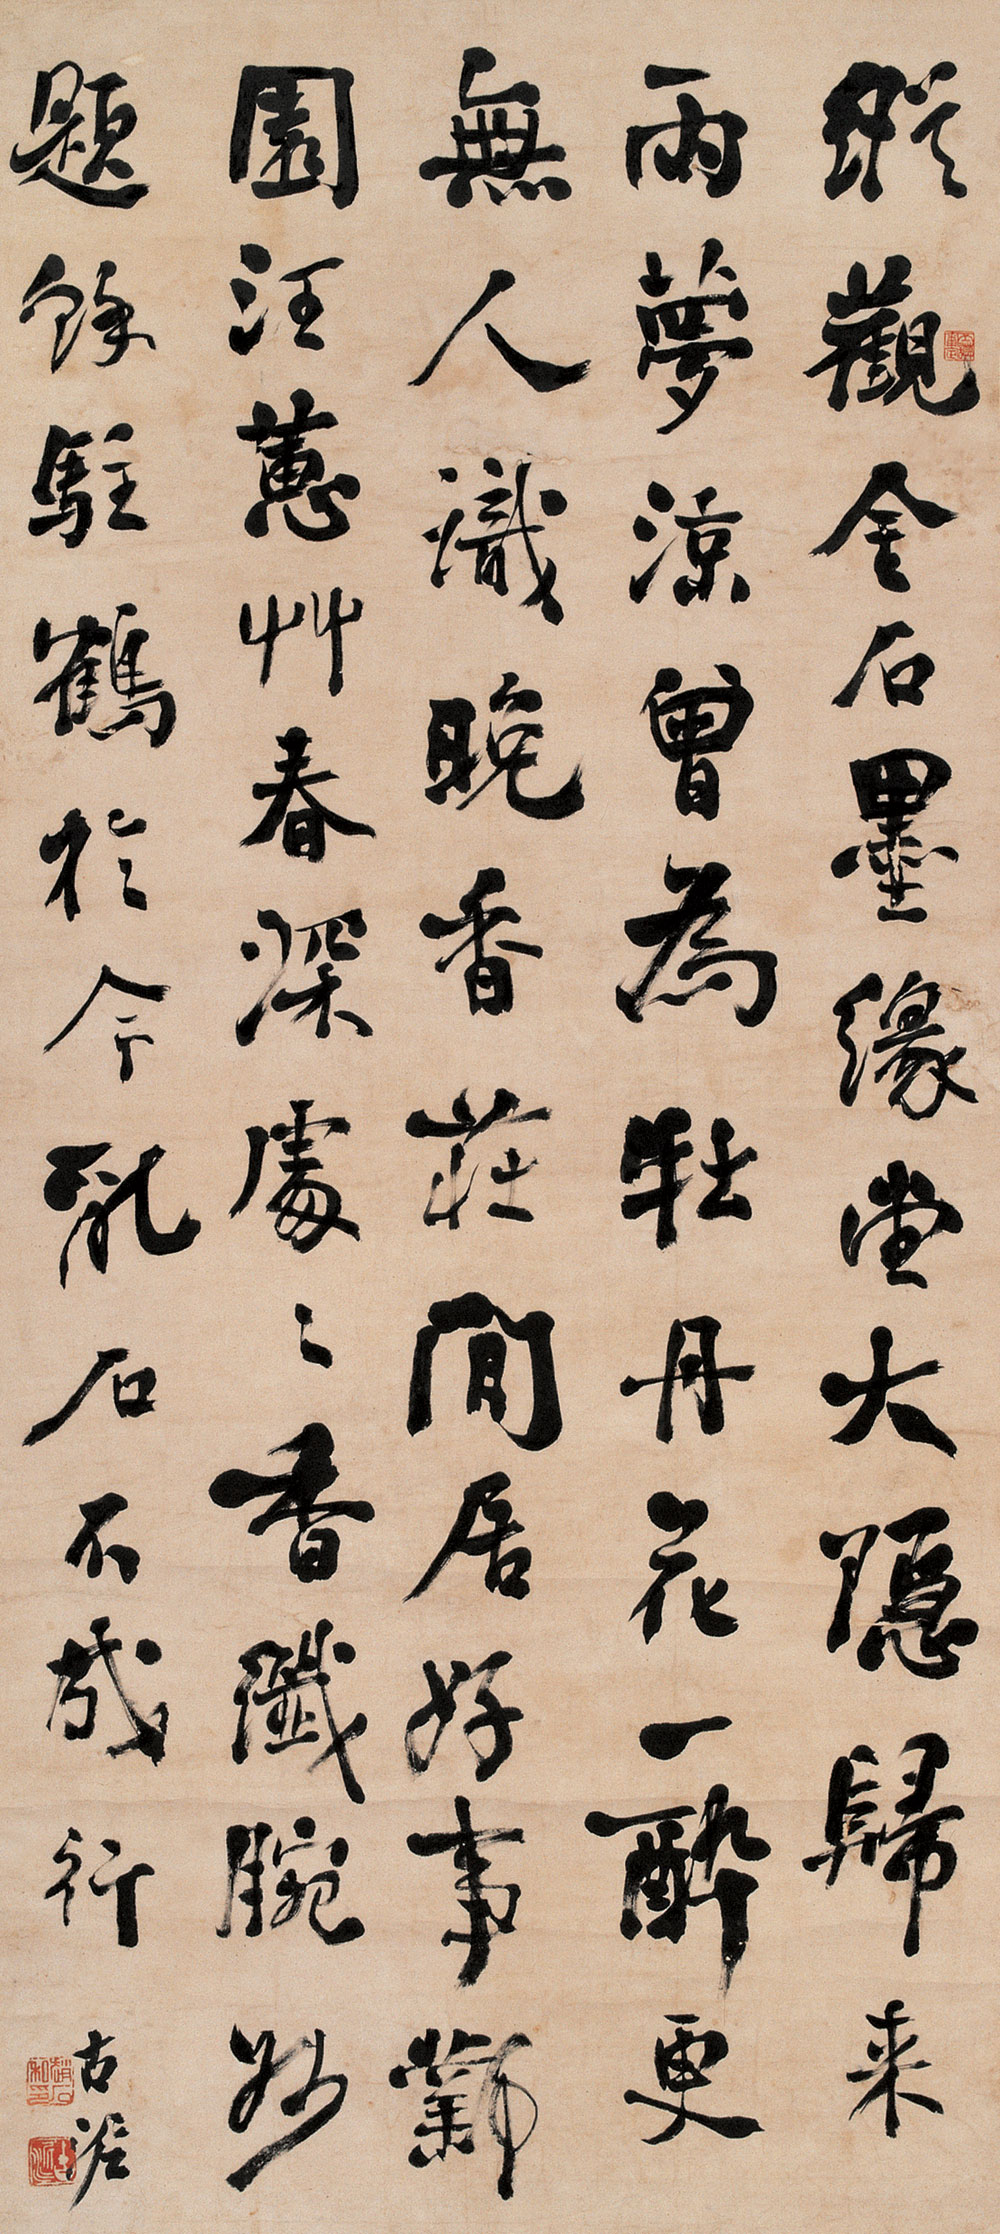 縱觀金石墨緣堂大隱歸来
雨夢涼曾為牡丹花一醉更
無人識晚香莊間居好事
園汪蕙艸春深處〻香纖腕妙
題餘駐鶴於今亂石不成行
古泥